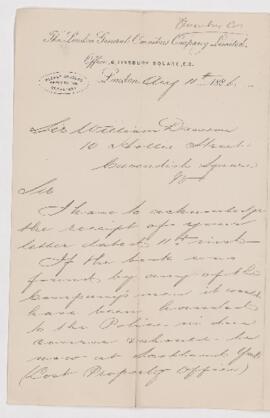 The London General Omnibus Company Limited.
Office, 6, Finsbury Square, E.C.
London Aug 11th 1886
Sir William Dawson
10 Hollis Street
Cavendish Square
W
Sir
I have to acknowledge
the receipt of your
letter dated 11th inst.
If the book was
found by any of the
Company's men it would
have been handed
to the Police in due
course & should be
now at Scotland Yard
(Lost Property Office)